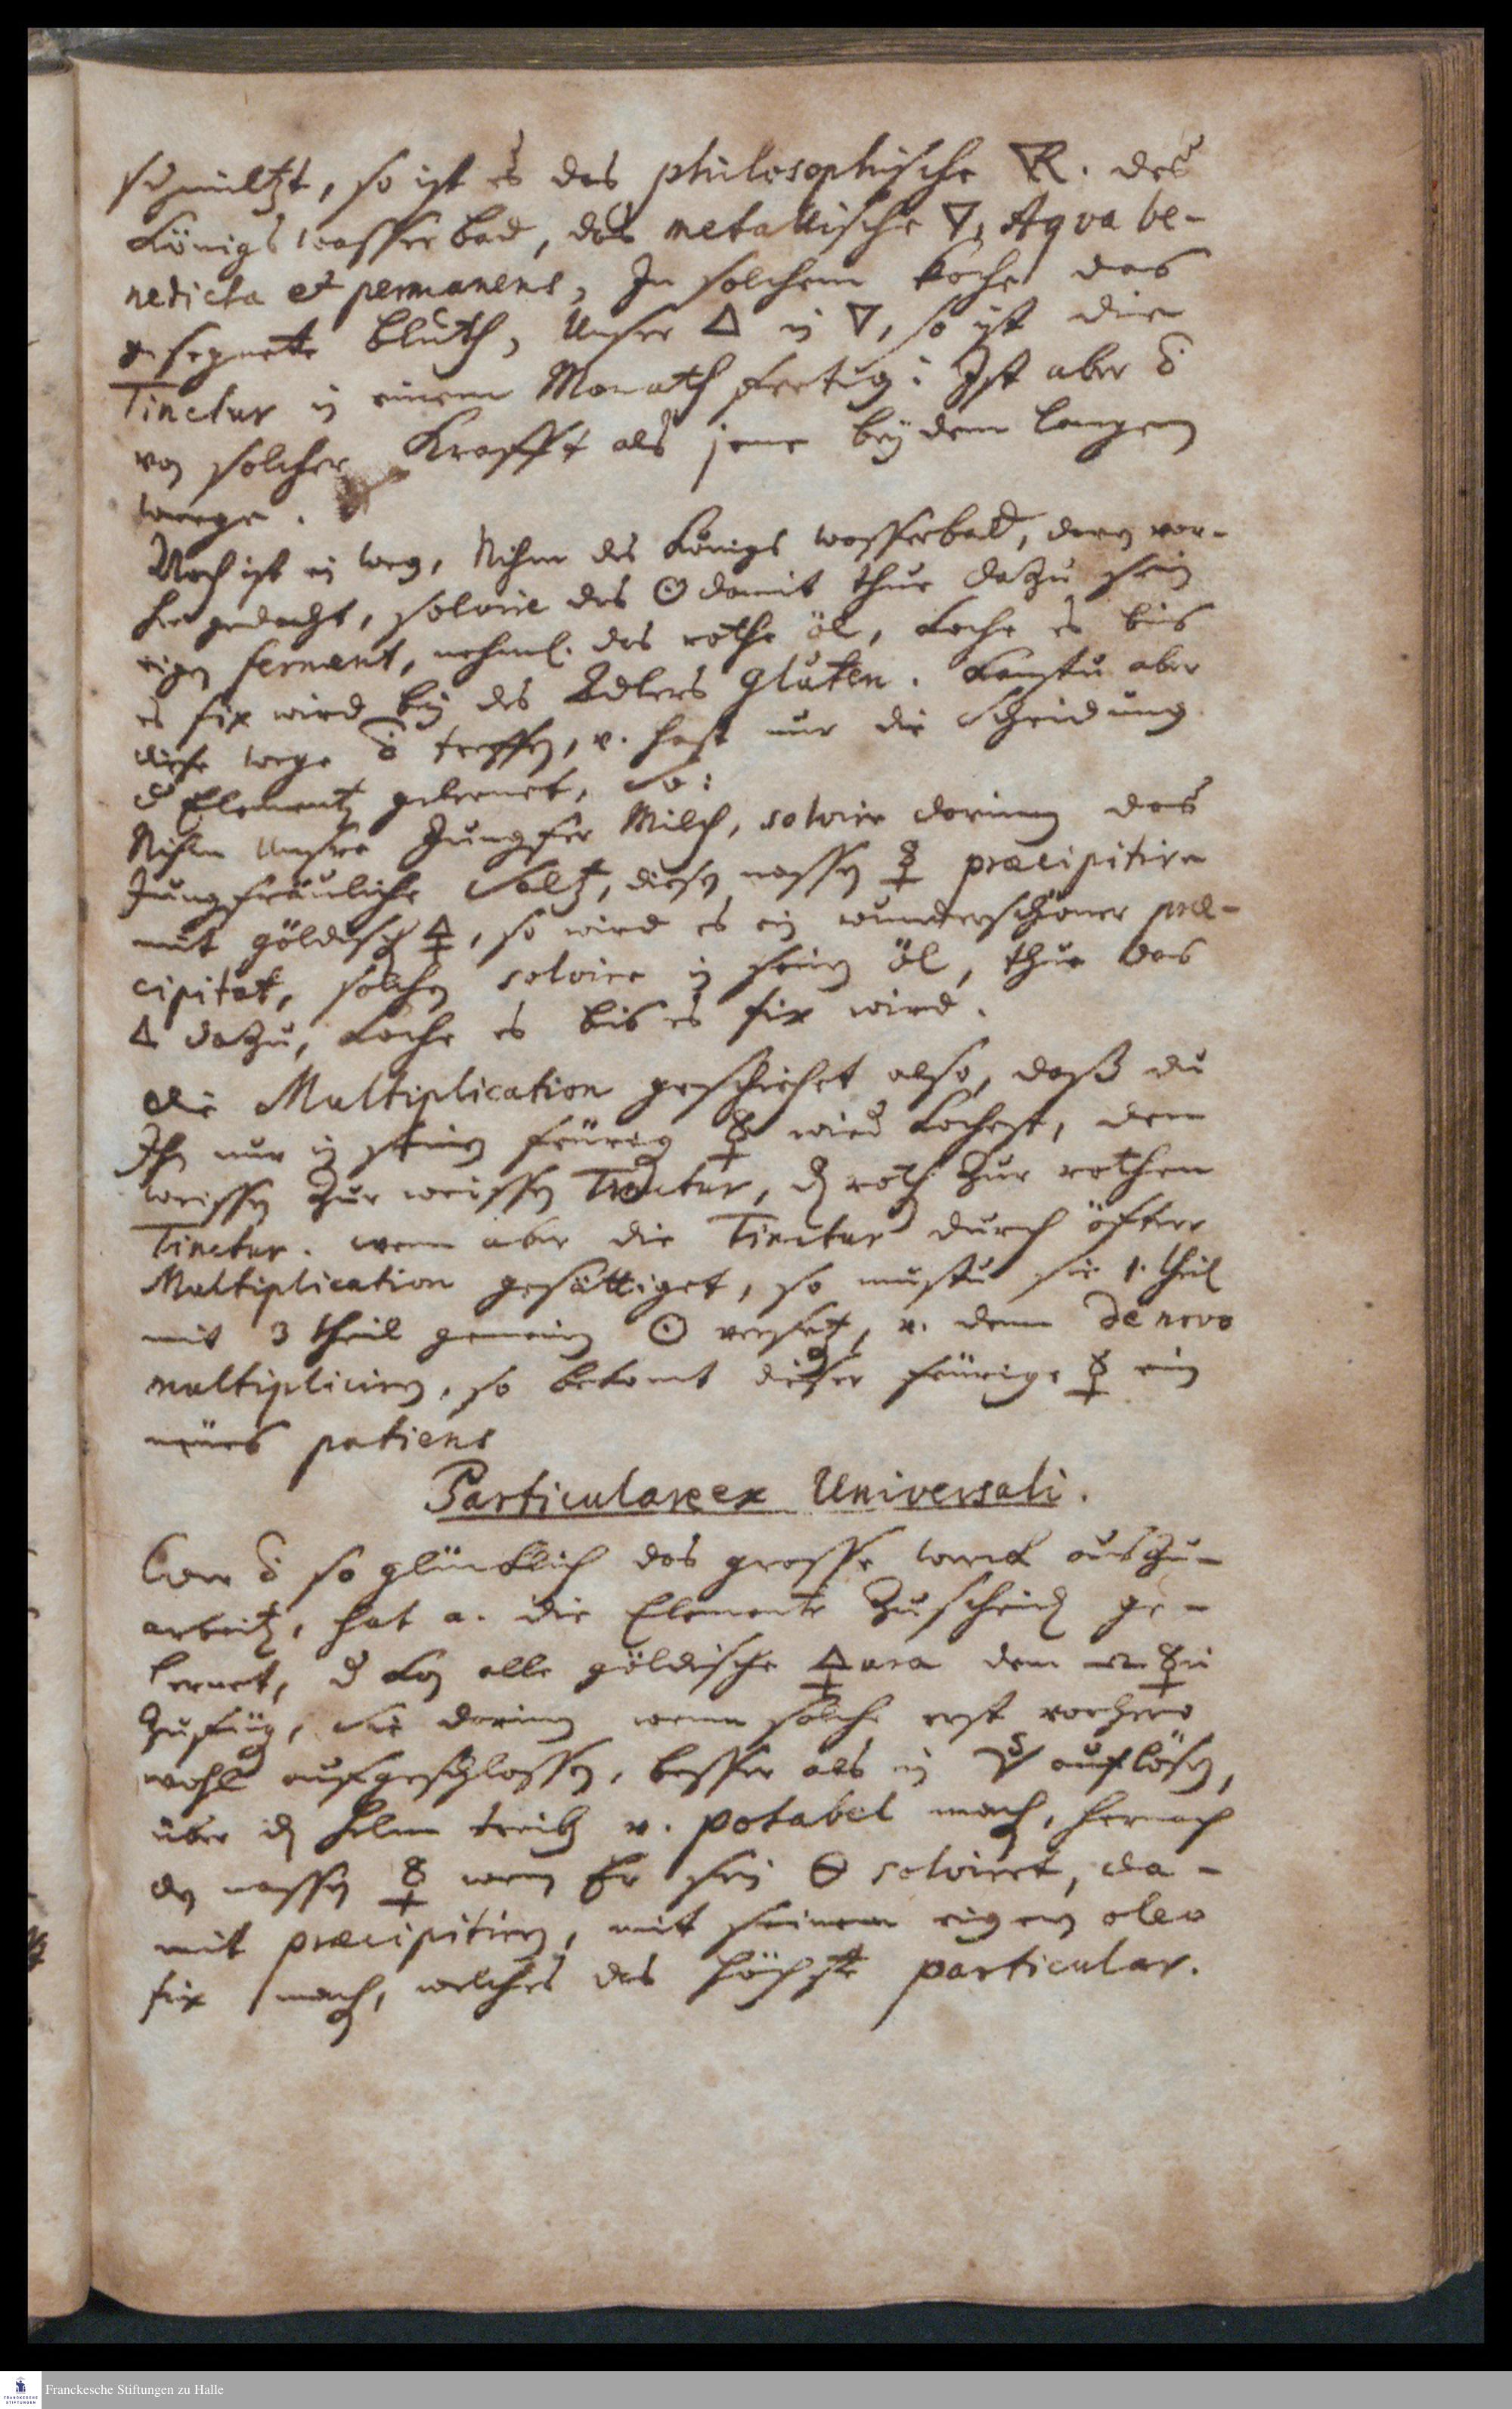 schmiltzt, so ist es das philosophische 🜄R. des
Königs wasserbad, das metallische 🜄, Aqva be-
nedicta et permanens, In solchem koche das
gesegnette Bluth, Unser 🜂 in 🜄, so ist die
Tinctur in einem Monath fertig: Ist aber
von solcher Krafft als jene bey dem langen
weege.
Noch ist ein weg, Nihm des Königs wasserbad, deßen vor-
her gedacht, solvire das ☉ damit thue dazu sein
eigen ferment, nehml. das rothe öl, koche es bis
es fix wird bey des Adlers Gluten. Kanstu aber
diese wege treffen, v. hast nur die Scheidung
Elementen gelernet, So:
Nihm Unsre Jungfer Milch, solvire darinnen das
Jungfräuliche Saltz, diesen nassen ☿ præcipitire
mit göldisch 🜍, so wird es ein wunderschöner præ-
cipitat, solchen solvire in sein öl, thue das
🜂 dazu, koche es bis es fix wird.
die Multiplication geschiehet also, daß du
Ihn nur in sein feürig ☿ wied kochest, den
weissen zur weissen Tinctur, den roth zur rothen
Tinctur. wenn aber die Tinctur durch öftere
Multiplication gesättiget, so mustu sie 1. theil
mit 3 theil gemein ☉ versetz, v. denn de novo
multipliciren, so bekomt dieser feürige ☿ ein
neües patiens
Particulare ex Universali.
Wer so glücklich das grosse werck auszu-
arbeiten, hat a. die Elemente zu scheiden ge-
lernet, der kan alle göldische 🜍ura dem ☿ii
zufüg, Sie darinnen wenn solche erst vorhero
wohl aufgeschlossen, besser als in auflösen,
über den Helm treiben v. potabel mach, hernach
den nassen ☿ wenn Er sein 🜔 solviret, da-
mit præcipitiren, mit seinem eigenen oleo
fix mach, welches das höchste particular.
Franckesche Stiftungen zu Halle